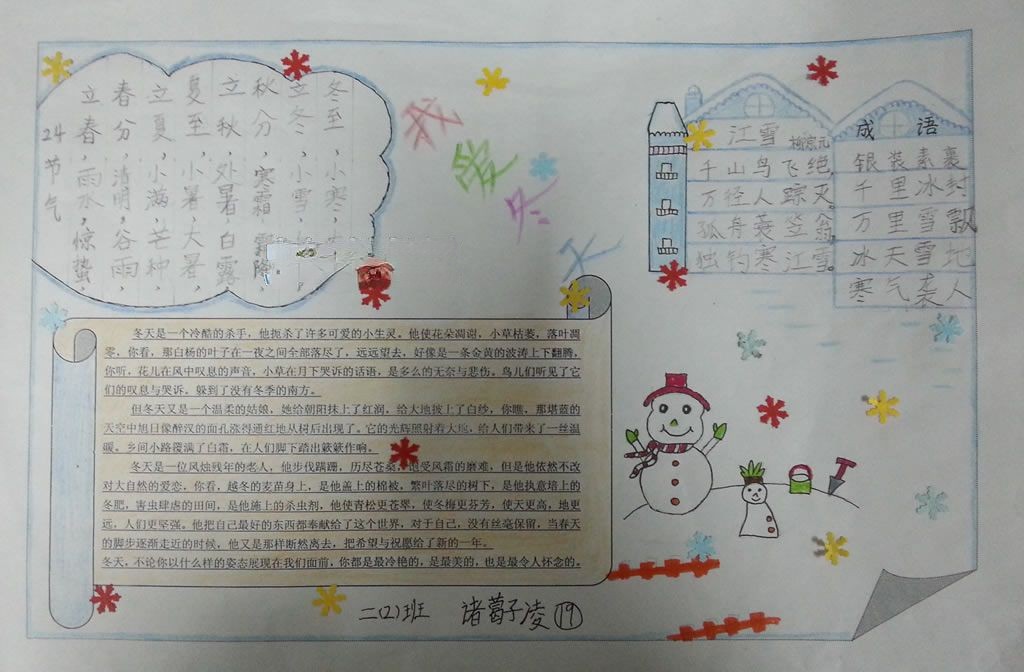 24节气
立春，雨水，惊蛰，
春分，清明，谷雨，
立夏，小满，芒种
夏至，小暑，大暑，
立秋，处暑，白露
秋分，寒霜，霜降
立冬，小雪，
冬至，小寒，
我
爱
冬
天
江雪 柳宗元
千山鸟飞绝，
万径人踪灭。
孤舟蓑笠翁，
独钓寒江雪。
成语
银装素裹
千里冰封
万里雪飘
冰天雪地
寒气袭人
冬天是一个冷酷的杀手，他扼杀了许多可爱的小生灵。他使花朵凋谢，小草枯萎，落叶凋
零，你看，那白杨的叶子在一夜之间全部落尽了，远远望去，好像是一条金黄的波涛上下翻腾，
你听，花儿在风中叹息的声音，小草在月下哭诉的话语，是多么的无奈与悲伤。鸟儿们听见了它
们的叹息与哭诉。躲到了没有冬季的南方。
但冬天又是一个温柔的姑娘，她给朝阳抹上了红润，给大地披上了白纱，你瞧，那堪蓝的
天空中旭日像醉汉的面孔涨得通红地从树后出现了。它的光辉照射着大地，给人们带来了一丝温
暖。乡间小路覆满了白霜，在人们脚下踏出簌簌作响。
冬天是一位风烛残年的老人，他步伐蹒跚，历尽苍桑，饱受风霜的磨难，但是他依然不改
对大自然的爱恋，你看，越冬的麦苗身上，是他盖上的棉被，繁叶落尽的树下，是他执意培上的
冬肥，害虫肆虐的田间，是他施上的杀虫剂，他使青松更苍翠，使冬梅更芬芳，使天更高，地更
远，人们更坚强。他把自己最好的东西都奉献给了这个世界，对于自己，没有丝毫保留，当春天
的脚步逐渐走近的时候，他又是那样断然离去，把希望与祝愿给了新的一年。
冬天，不论你以什么样的姿态展现在我们面前，你都是最冷艳的，是最美的，也是最令人怀念的。
二(2)班 诸葛子凌 19